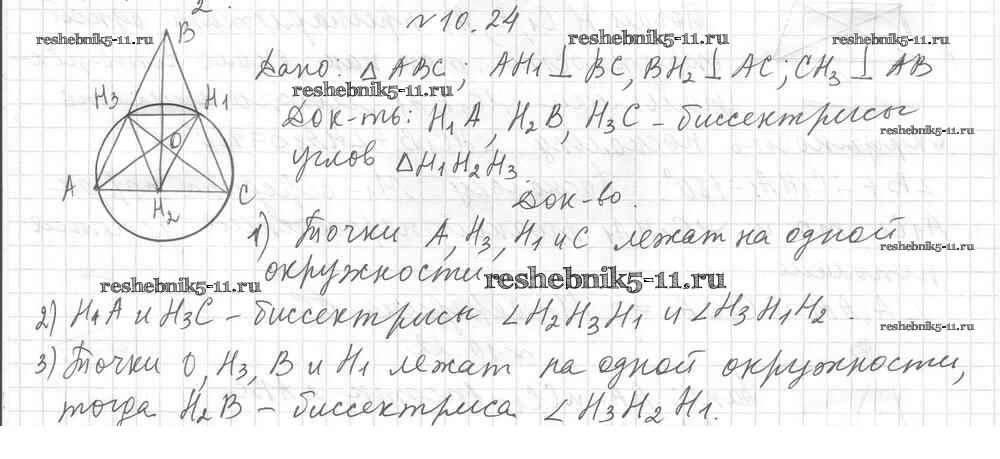 2.
№10.24
reshebnik5-11.ru
B
reshebnik5-11.ru
reshebnik5-11.ru
Дано: △ABC; AH1⊥BC, BH2⊥AC; CH3⊥AB
reshebnik5-11.ru
H3
H1
Док-ть: H1A, H2B, H3C - биссектрисы
reshebnik5-11.ru
O
углов △H1H2H3
A
C
H2
Док-во.
1) Точки A, H3, H1 и C лежат на одной
reshebnik5-11.ru
окружности
reshebnik5-11.ru
reshebnik5-11.ru
2) H1A и H3C - биссектрисы ∠H2H3H1 и ∠H3H1H2.
reshebnik5-11.ru
3) Точки O, H3, B и H1 лежат на одной окружности,
тогда H2B - биссектриса ∠H3H2H1.